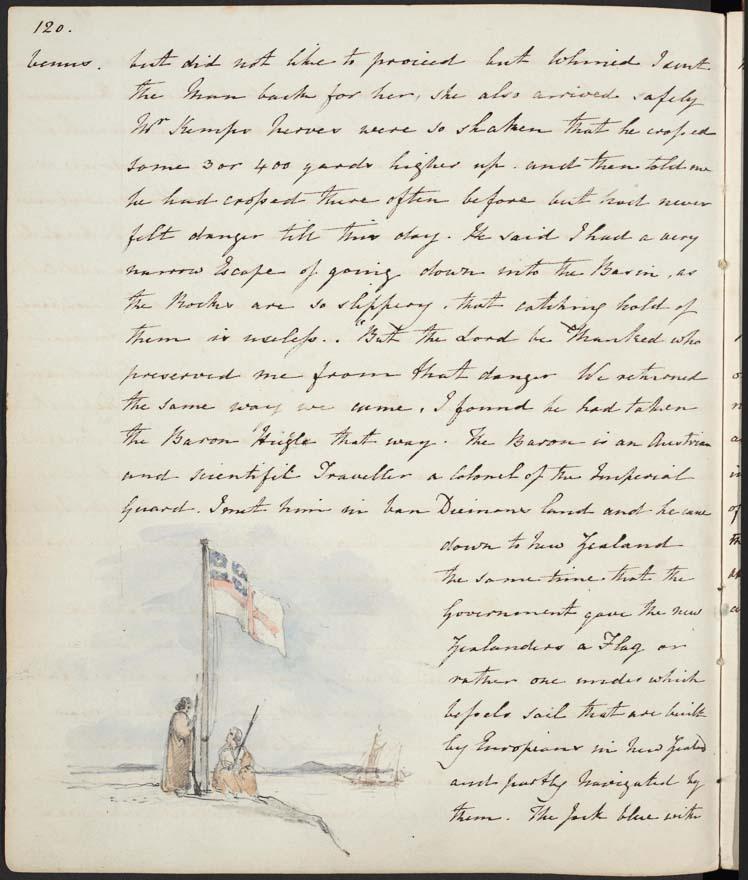 120.
but did not like to proceed but whined I sent
the Man back for her, she also arrived safely
Mr Kemps Nerves were so shaken that he croped
some 3 or 400 yards higher up. and then told me
he had croped there often before but had never
felt danger till this day. He said I had a very
narrow Escape of going down into the Basin, as
the Rocks are so slippery, that catching hold of
them is useless.. But the Lord be Thanked who
preserved me from that danger We returned
the same way we came, I found he had taken
the Baron Hügle that way. The Baron is an Austrian
and scientific Traveller a Colonel of the Imperial
Guard. I met him in Van Diemans land and he came
down to New Zealand
the same time that the
Government gave the new
Zealanders a Flag or
rather one under which
vessels sail that are built
by Europians in New Zeald
and partly Navigated by
them. The Jack blue with